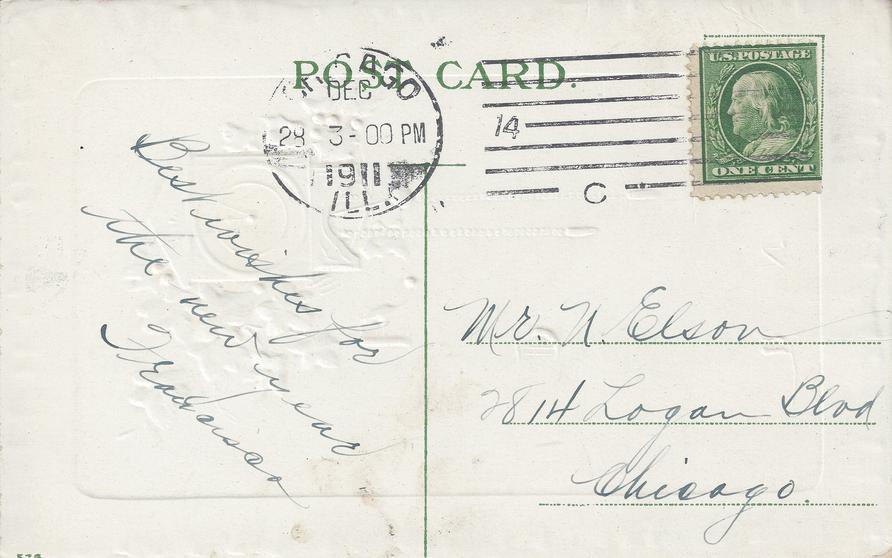 POST CARD.
CHICAGO
DEC
28 3-00 PM
1911
ILL.
14
C
U.S. POSTAGE
ONE CENT
Best wishes for
the new year
Francisco
Mr. N. Elson
2814 Logan Blvd
Chicago.